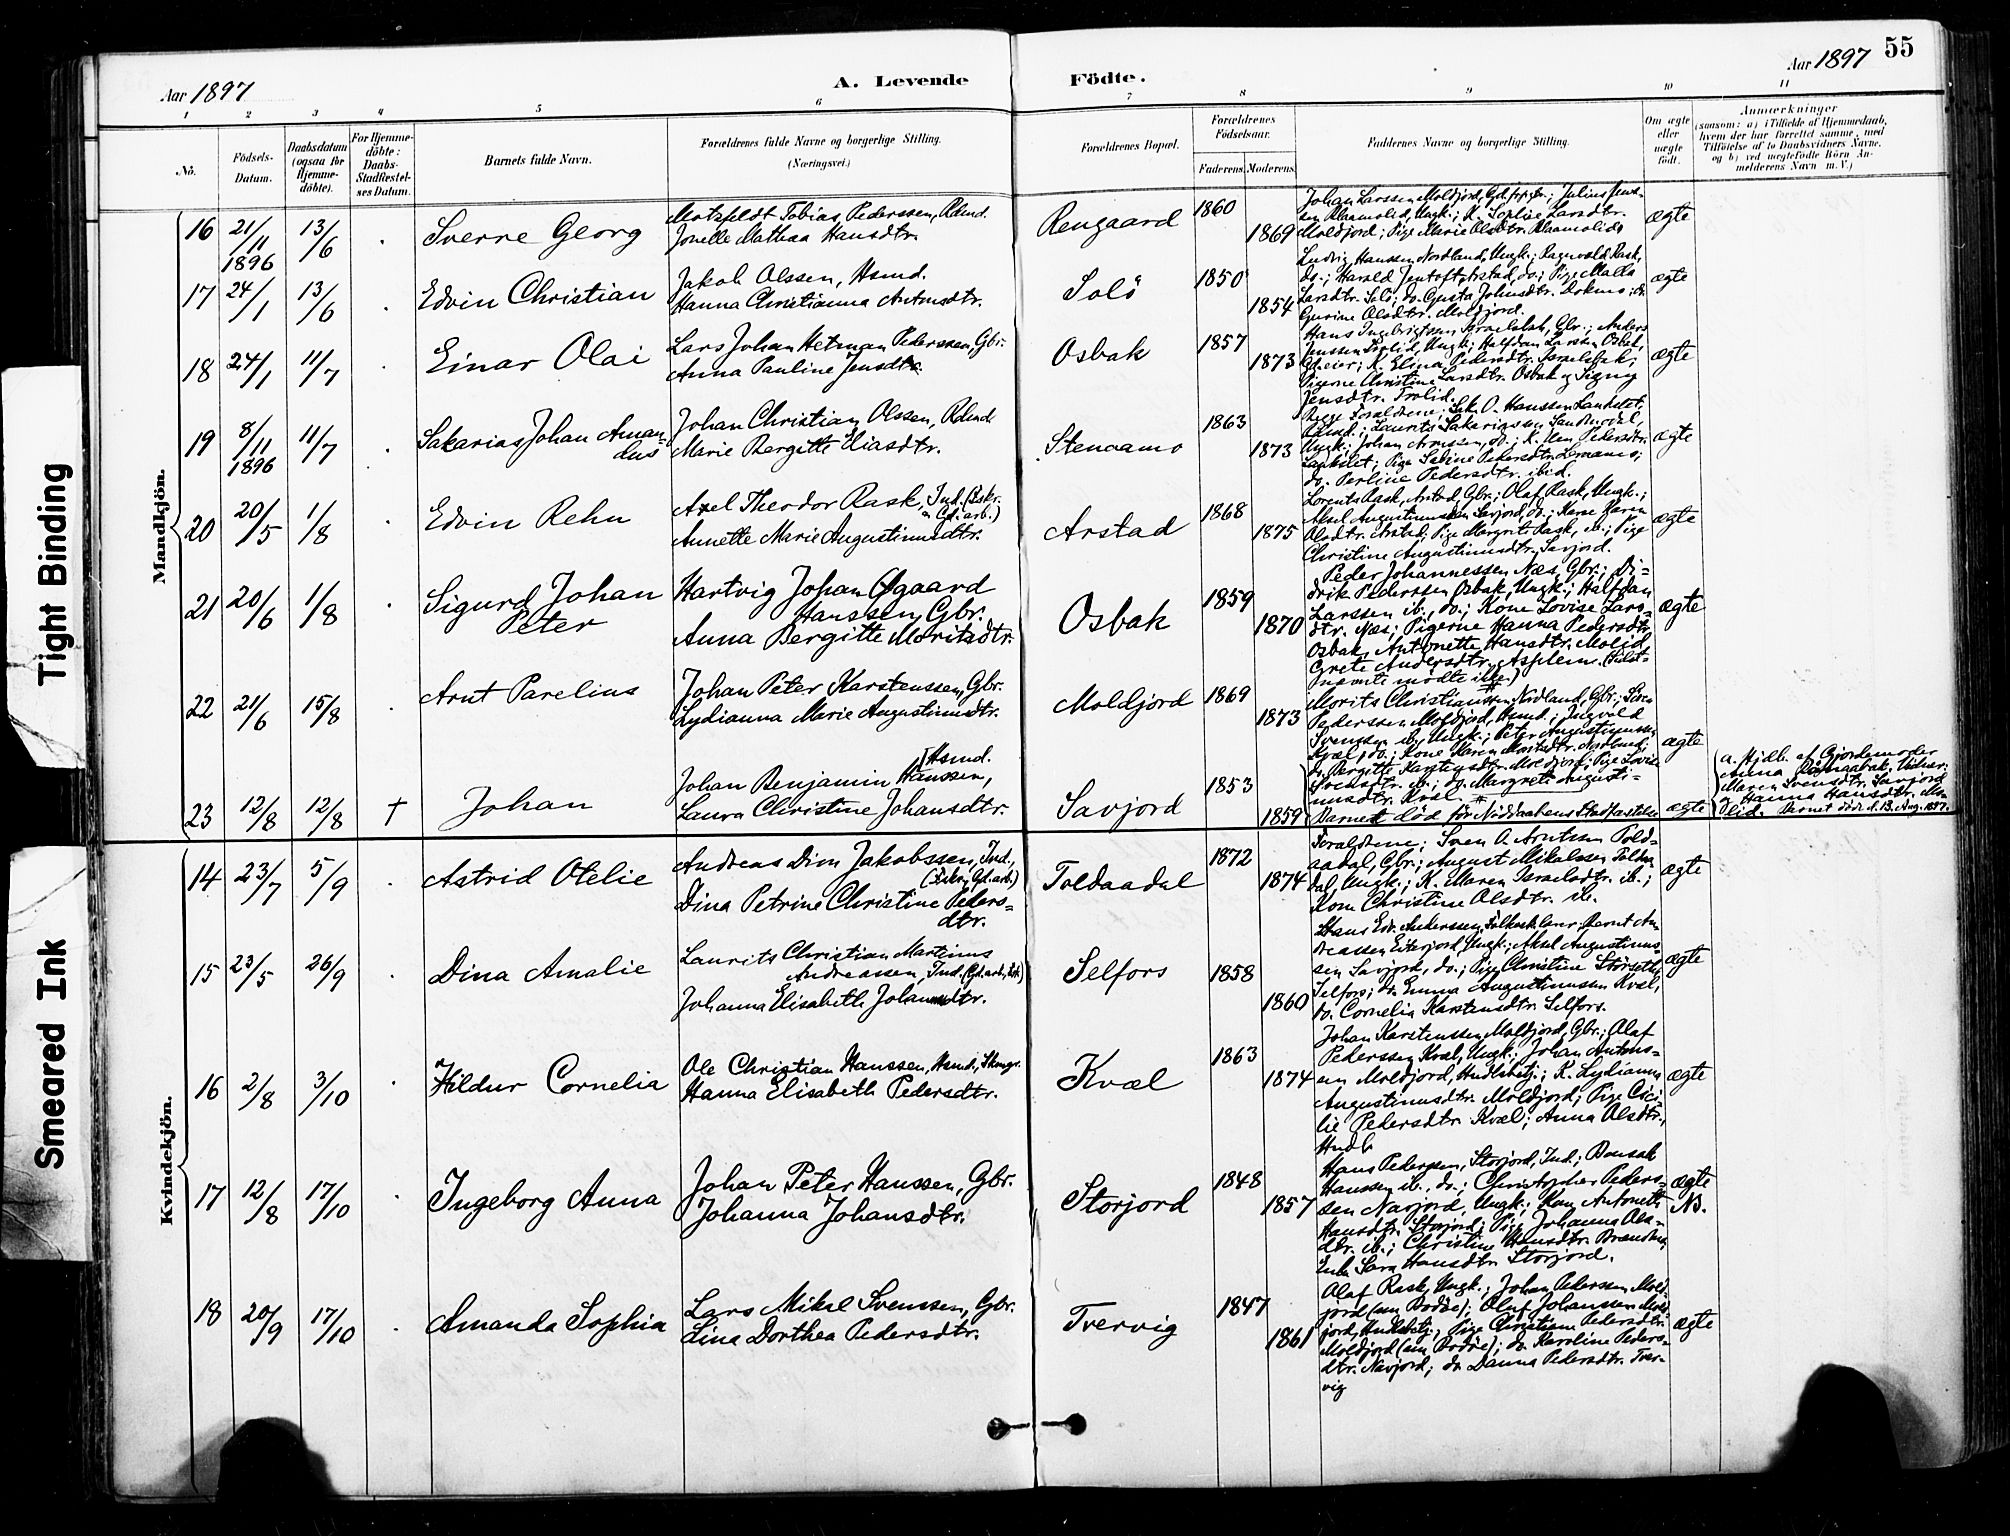 Aar 1897
A. Levende
Födte.
Aar 1897
55
1 2 3 4 5 6 7 8 9 10 11
No.
Födsels-Datum.
Daabsdatum (ogsaa for Hjemmedöbte).
For Hjemmedöbte: Daabs-Stadfæstelses Datum.
Barnets fulde Navn.
Forældrenes fulde Navne og borgerlige Stilling. (Næringsvei.)
Forældrenes Bopæl.
Forældrenes Födselsaar.
Faderens. Moderens.
Faddernes Navne og borgerlige Stilling.
Om ægte eller uægte födt.
Anmærkninger
(saasom: a) i Tilfælde af Hjemmedaab, hvem der har forrettet samme, med Tilföielse af to Daabsvidners Navne, og b) ved uegtefödte Börn Anmelderens Navn m. V.)
Mandkjön.
16 21/11 1896 13/6 Sverre Georg
Motzfeldt Tobias Pederssen,
Jonelle Mathea Hansdtr.
Rengaard 1860 1869
Johan Larssen Moldjord,
Moldjord; Pige Marie Olsdtr.
ægte
17 24/1 13/6 Edvin Christian
Jakob Olssen, Hsmd.
Hanna Christianna Antonsdtr.
Solö 1850 1854
Ludvig Hanssen Nordland, Ungk.; Ragnvald Rask,
do.; Harald Jentoft, Arstad, do.; Pige
Larsdtr. Solö; do. Gusta Johnsdtr.
Gurine Olsdtr. Moldjord.
ægte
18 24/1 11/7 Einar Olai
Lars Johan Hetman Pederssen, Gbr.
Anna Pauline Jensdtr.
Osbak 1857 1873
Hans Ingebrigtsen Israelsbak, Gbr.; Anders
Jenssen Ungk; Halfdan Larssen Osbak,
K. Elina Pedersdtr. Israelsbak;
Pigerne Christine Larsdtr. Osbak og Signy
Jensdtr. Trolid.
ægte
19 8/11 1896 11/7 Sakarias Johan Amandus
Johan Christian Olssen,
Marie Bergitte Eliasdtr.
Stenoamo 1863 1873
Begge Forældrene; O. Hanssen
Laurits Sakariassen
Ungk; Johan Arnessen, do.; K.
Pige Sabine Pedersdtr.
do. Perline Pedersdtr. ibid.
ægte
20 20/5 1/8 Edvin Rehn
Axel Theodor Rask, Ind. (Fisker
Gd.arb.)
Annette Marie Augustinusdtr.
Arstad 1868 1875
Lorents Rask, Arstad, Gbr.; Olaf Rask, Ungk.;
Aksel Augustinussen Savjord, do.; Karen
Olsdtr. Arstad; Pige Margrete Rask, ib.; Pige
Christine Augustinusdtr. Savjord.
ægte
21 20/6 1/8 Sigurd Johan
Peter
Hartvig Johan Øgaard
Hanssen, Gbr.
Anna Bergitte Moritsdtr.
Osbak 1859 1870
Peder Johannessen Næs, Gbr.; Di-
drik Pederssen Osbak, Ungk.; Halfdan
Larssen ib., do.; Kone Lovise Lars-
dtr. Næs; Pigerne Hanna Pedersdtr.
Osbak, Antonette Hansdtr. Molid,
Grete Andersdtr. Asplem. (Sidst-
nævnte mödte ikke.)
ægte
22 21/6 15/8 Arnt Parelius
Johan Peter Karstenssen, Gbr.
Lydianna Marie Augustinusdtr.
Moldjord 1869 1873
Morits Christianssen Nordland, Gbr.;
Pederssen Moldjord, Hsmd.; Ingvald
Svenssen ib., Ungk.; Peter Augustinussen
Kvæl, do.; Kone Karen Moritsdtr. Nordland;
do. Bergitte Karstensdtr. Moldjord; Pige Lovise
Svensdtr. ib.; do. Margrete Augusti-
nusdtr. Kvæl.
ægte
23 12/8 12/8 † Johan
Johan Benjamin Hanssen, Hsmd.
Laura Christine Johansdtr.
Savjord 1853 1859
Barnet död för Nöddaabens Stadfæstelse
ægte
a. Hjdb. af Gjordemoder
Anna
Maren Svensdtr. Savjord
og Hanna Hansdtr. Mo-
lid. Barnet döde d. 13. Aug. 1897.
Kvindekjön.
14 23/7 5/9 Astrid Otelie
Andreas Dion Jakobssen, Ind.,
(Fisker, Gd.arb.)
Dina Petrine Christine Peders-
dtr.
Toldaadal 1872 1874
Forældrene; Sven A. Arntssen Told-
aadal, Gbr.; August Mikalssen Toldaa-
dal, Ungk.; K. Maren Israelsdtr. ib.;
Kone Christine Olsdtr. ib.
ægte
15 23/5 26/9 Dina Amalie
Laurits Christian Martinus
Andreassen, Ind. (Gd.arb., Fisk.)
Johanna Elisabeth Johannesdtr.
Selfors 1858 1860
Hans Edv. Anderssen, Folkeskolelærer; Bernt An-
dreassen Eiterjord, Ungk.; Aksel Augustinus-
sen Savjord, do.; Pige Christine Störseth,
Selfors; do. Emma Augustinussen Kvæl,
do. Cornelia Karstensdtr. Selfors.
ægte
16 2/8 3/10 Hildur Cornelia
Ole Christian Hanssen, Hsmd.,
Hanna Elisabeth Pedersdtr.
Kvæl 1863 1874
Johan Karstenssen, Moldjord, Gbr.; Olaf
Pederssen Kvæl, Ungk.; Johan Antons-
sen Moldjord, Handlsbetj.; K. Lydianna
Augustinusdtr. Moldjord; Pige Ceci-
lie Pedersdtr. Kvæl; Anna Olsdtr.,
ægte
17 12/8 17/10 Ingeborg Anna
Johan Peter Hanssen, Gbr.
Johanna Johansdtr.
Storjord 1848 1857
Hans Pederssen, Storjord, Ind.; Bonsak
Hanssen ib., do.; Christopher Peders-
sen Navjord, Ungk.; Kone Antonette
Hansdtr. Storjord; Pige Johanna Ols-
dtr. ib.; Christine Hansdtr.
Enke Sara Hansdtr. Storjord.
ægte
NB.
18 20/9 17/10 Amanda Sophia
Lars Mikal Svenssen, Gbr.
Lina Dorthea Pedersdtr.
Tvervig 1847 1861
Olaf Rask, Ungk.; Johan Pederssen Mold-
jord (nu Bodöe); Olaf Johanssen Mold-
jord, Handlsbetj.; Pige Christiane Pedersdtr.
Moldjord (nu Bodöe); do. Karoline Peders-
dtr. Navjord; do. Danna Pedersdtr. Tver-
vig
ægte
Tight Binding
Smeared Ink